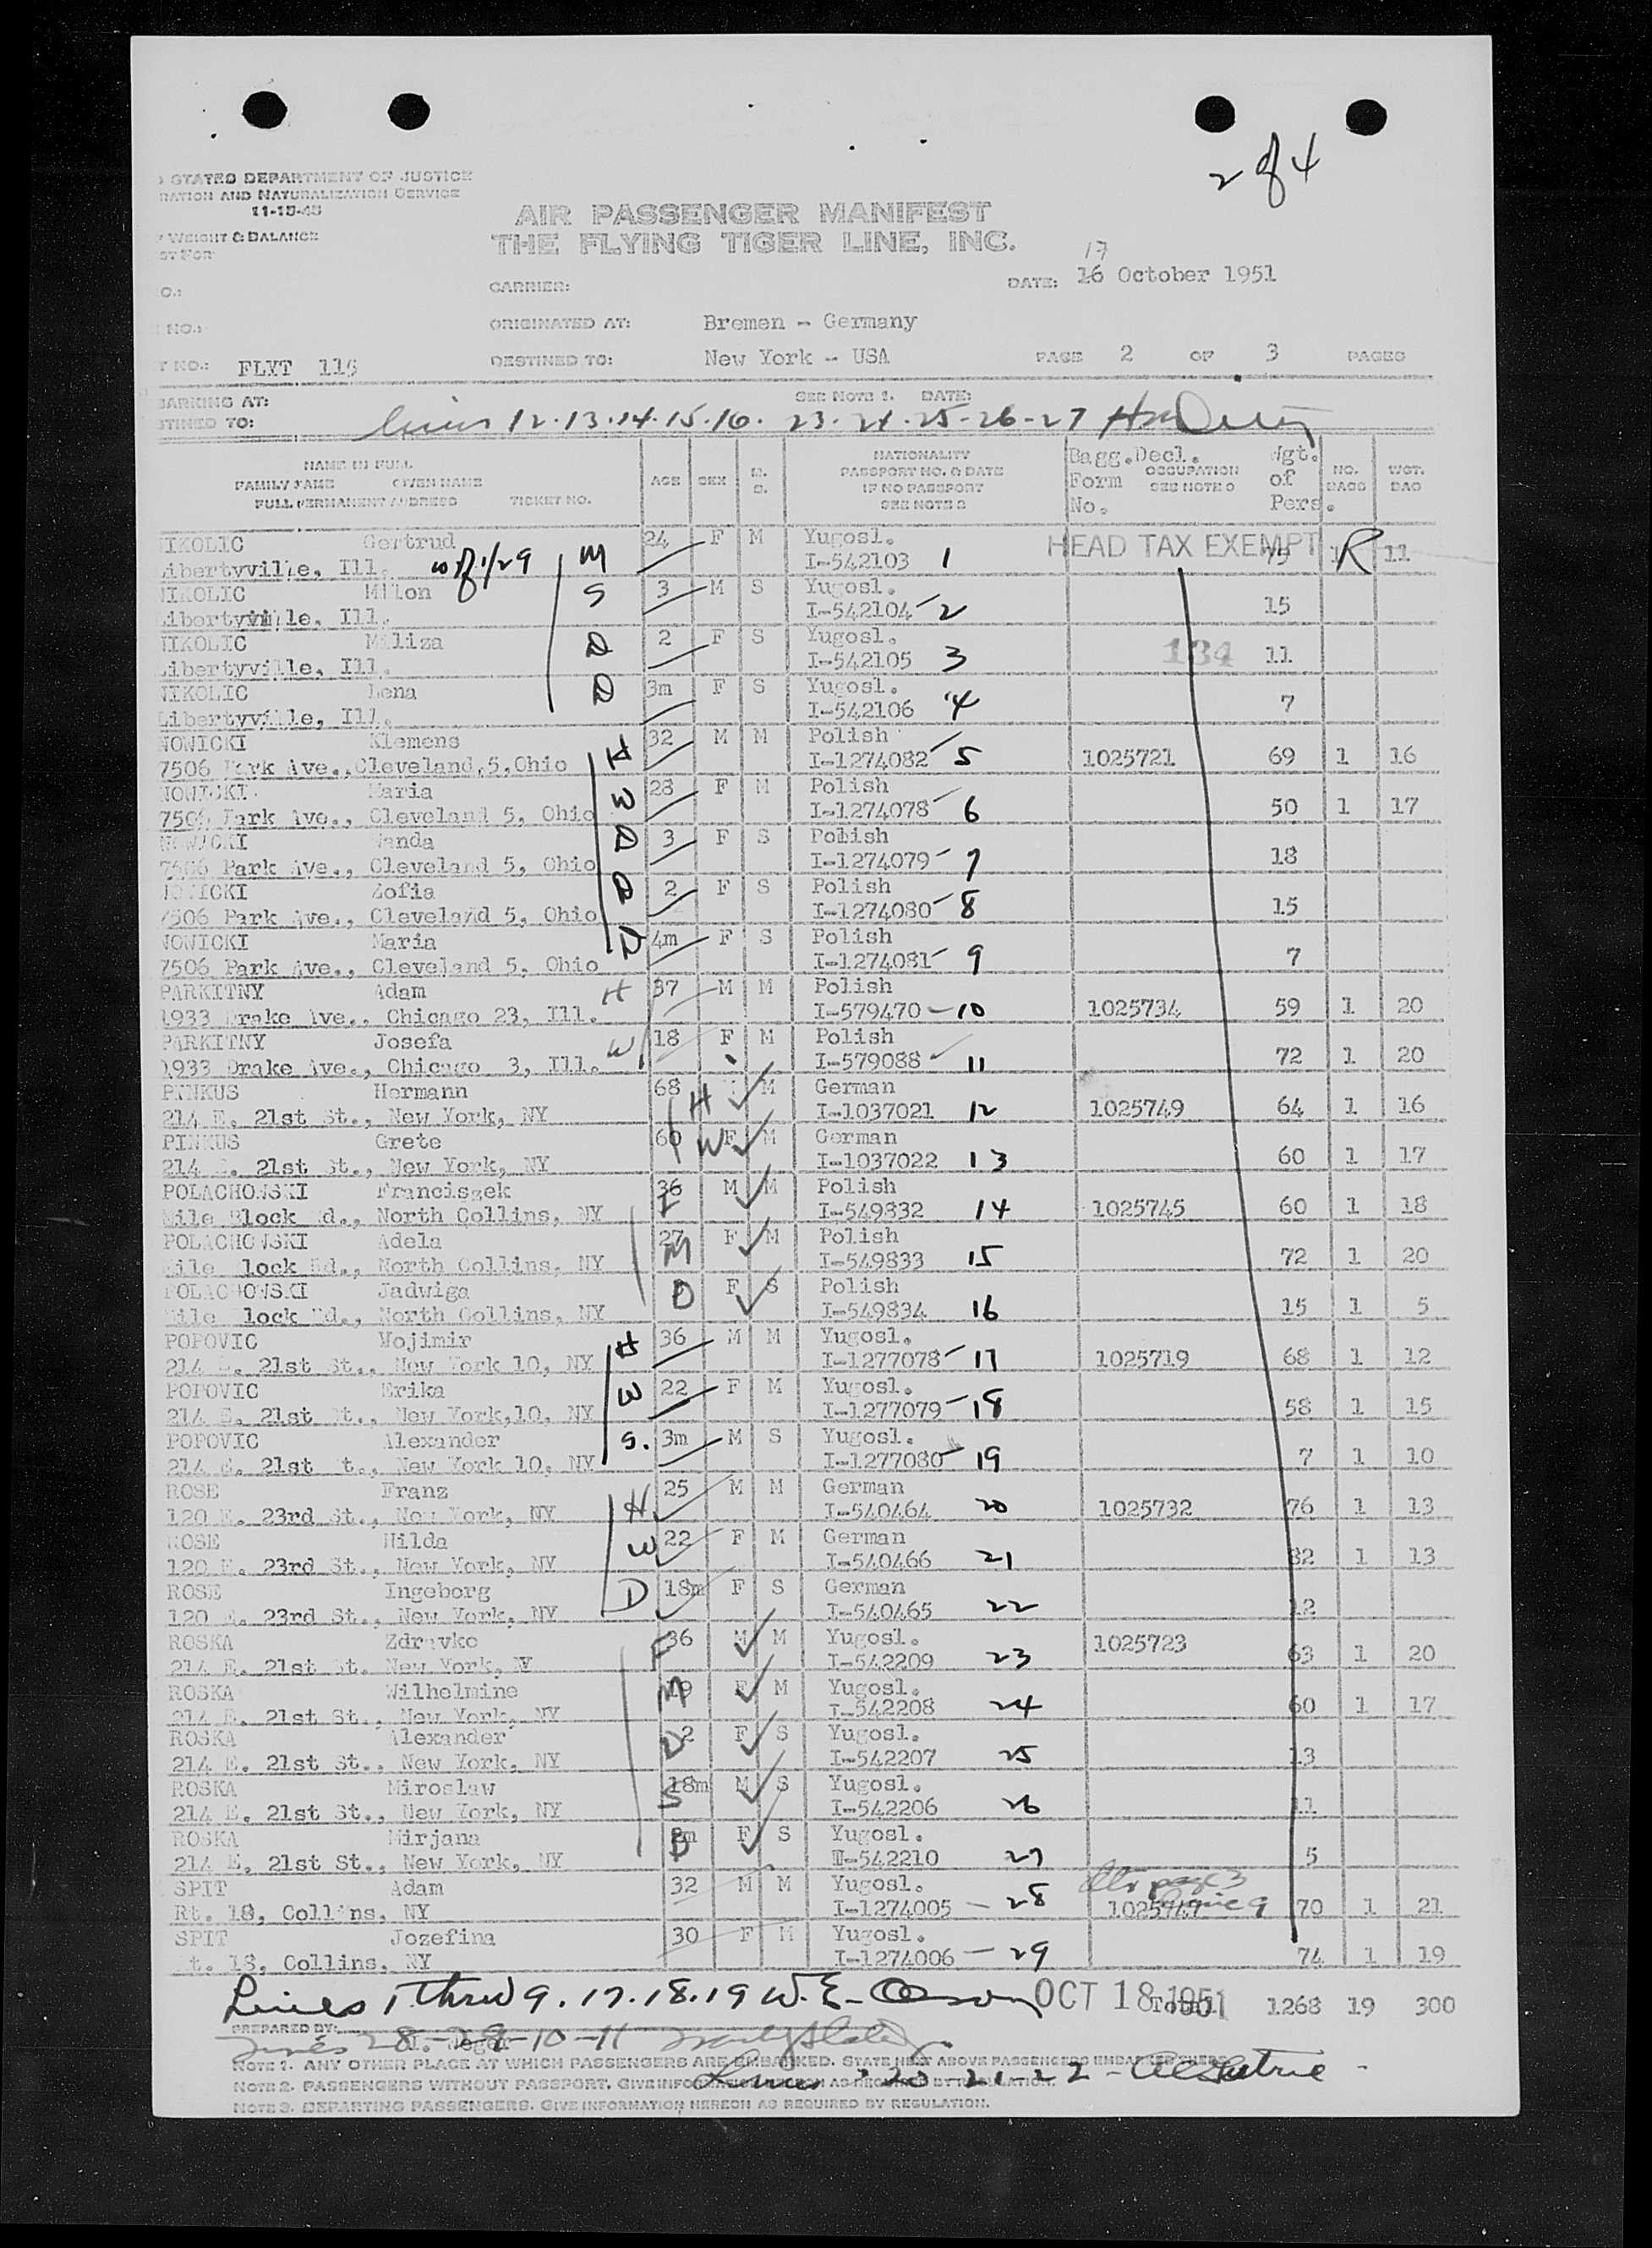 2 of 4
STATES DEPARTMENT OF JUSTICE
RATION AND NATURALIZATION SERVICE
11-15-45
WEIGHT & BALANCE
ST FOR
AIR PASSENGER MANIFEST
THE FLYING TIGER LINE, INC.
O.:
CARRIER:
DATE: 16 October 1951
17
NO.:
ORIGINATED AT: Bremen - Germany
T NO.: FLYT
DESTINED TO: New York - USA PAGE 2 OF 3 PAGES
BARKING AT: SEE NOTE 1. DATE:
STINED TO: Lines 12.13.14.15.16. 23.24.25-26-27
NAME IN FULL
FAMILY NAME GIVEN NAME
FULL PERMANENT ADDRESS TICKET NO.
AGE SEX M. S.
NATIONALITY PASSPORT NO. & DATE IF NO PASSPORT SEE NOTE 2
Bagg.Decl. Form No. OCCUPATION SEE NOTE 3
Wgt. of Pers. NO. BAGS WGT. BAG
NIKOLIC Gertrud 24 F M Yugosl. HEAD TAX EXEMPT
Libertyville, Ill. w of 1/29 M I-542103 1 75 1 R 11
NIKOLIC Milon S 3 M S Yugosl.
Libertyville, Ill. I-542104 2 15
NIKOLIC Miliza D 2 F S Yugosl.
Libertyville, Ill. I-542105 3 184 11
NIKOLIC Lena D 3m F S Yugosl.
Libertyville, Ill. I-542106 4 7
NOWICKI Klemens H 32 M M Polish
7506 Park Ave., Cleveland,5,Ohio I-1274082 5 1025721 69 1 16
NOWICKI Maria W 28 F M Polish
7506 Park Ave., Cleveland 5, Ohio I-1274078 6 50 1 17
NOWICKI Wanda D 3 F S Polish
7506 Park Ave., Cleveland 5, Ohio I-1274079 7 18
NOWICKI Zofia D 2 F S Polish
7506 Park Ave., Cleveland 5, Ohio I-1274080 8 15
NOWICKI Maria D 4m F S Polish
7506 Park Ave., Cleveland 5, Ohio I-1274081 9 7
PARKITNY Adam H 37 M M Polish
1933 Drake Ave., Chicago 23, Ill. I-579470 10 1025734 59 1 20
PARKITNY Josefa W 18 F M Polish
1933 Drake Ave., Chicago 3, Ill. I-579088 11 72 1 20
PINKUS Hermann 68 H M German
214 E. 21st St., New York, NY I-1037021 12 1025749 64 1 16
PINKUS Grete 60 W F M German
214 E. 21st St., New York, NY I-1037022 13 60 1 17
POLACHOWSKI Franciszek 36 M M Polish
Mile Block Rd., North Collins, NY F I-549832 14 1025745 60 1 18
POLACHOWSKI Adela 27 F M Polish
Mile Block Rd., North Collins, NY M I-549833 15 72 1 20
POLACHOWSKI Jadwiga D F S Polish
Mile Block Rd., North Collins, NY I-549834 16 15 1 5
POPOVIC Mojimir H 36 M M Yugosl.
214 E. 21st St., New York 10, NY I-1277078 17 1025719 68 1 12
POPOVIC Erika W 22 F M Yugosl.
214 E. 21st St., New York,10, NY I-1277079 18 58 1 15
POPOVIC Alexander S. 3m M S Yugosl.
214 E. 21st St., New York 10, NY I-1277080 19 7 1 10
ROSE Franz H 25 M M German
120 E. 23rd St., New York, NY I-540464 20 1025732 76 1 13
ROSE Hilda W 22 F M German
120 E. 23rd St., New York, NY I-540466 21 82 1 13
ROSE Ingeborg D 18m F S German
120 E. 23rd St., New York, NY I-540465 22 12
ROSKA Zdravko F 36 M M Yugosl. 1025723
214 E. 21st St. New York, NY I-542209 23 63 1 20
ROSKA Wilhelmine M F M Yugosl.
214 E. 21st St., New York, NY I-542208 24 60 1 17
ROSKA Alexander D 2 F S Yugosl.
214 E. 21st St., New York, NY I-542207 25 13
ROSKA Miroslaw S 18m M S Yugosl.
214 E. 21st St., New York, NY I-542206 26 11
ROSKA Mirjana D F S Yugosl.
214 E. 21st St., New York, NY I-542210 27 5
SPIT Adam 32 M M Yugosl.
Rt. 18, Collins, NY I-1274005 - 28 page 3 line 9 70 1 21
SPIT Jozefina 30 F M Yugosl.
Rt. 18, Collins, NY I-1274006 - 29 74 1 19
Lines 1 thru 9. 17.18.19 W.E. OCT 18 1951 Total 1268 19 300
PREPARED BY:
Lines 28-29-10-11
NOTE 1. ANY OTHER PLACE AT WHICH PASSENGERS ARE EMBARKED. STATE NEXT ABOVE PASSENGERS EMBARKED THERE.
Lines 20 21-22-
NOTE 2. PASSENGERS WITHOUT PASSPORT. GIVE INFORMATION AS REQUIRED BY REGULATION.
NOTE 3. DEPARTING PASSENGERS. GIVE INFORMATION HEREON AS REQUIRED BY REGULATION.